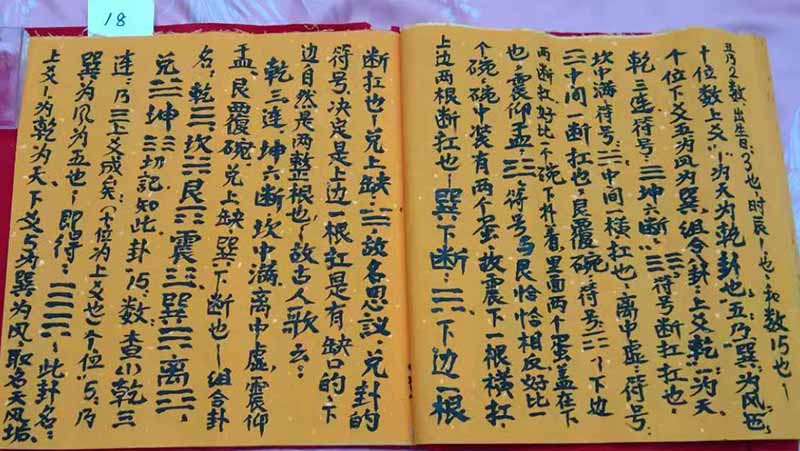 18
丑乃2数,出生日:3也,时辰1也,和数15也—
十位数上爻"一"为天为乾卦也"五乃巽为风也,
个位下爻五为风为巽,组合卦,上爻乾"为天、
乾三连符号:☰坤六断"☷符号断扛扛也,
坎中满符号:☵中间一横扛也,离中虚:符号:
☲中间一断扛也,艮覆碗,符号:☶下边
两断扛,好比一个碗下扑着,里面两个蛋,盖在下
也,震仰盂,☳:符号与艮恰恰相反,好比一
个碗,碗中装有两个蛋,故震下一根横扛,
上边两根断扛也—巽下断,☴:下边一根
断扛也—兑上缺:☱:故名思议,兑卦的
符号,决定是上边一根扛是有缺口的,下
边自然是两整根也,故古人歌云:
乾三连,坤六断,坎中满,离中虚,震仰
盂,艮覆碗,兑上缺,巽下断也—组合卦
名:乾☰坎☵艮☶震☳巽☴离☲、
兑☱坤☷切记如此卦"15,数:查以乾三
连:乃☰上爻成矣:(十位为上爻也)个位"5,乃
巽为风为五也,即得:☰☴此卦名:
上爻一为乾为天、下爻5为巽为风,取名天风垢,